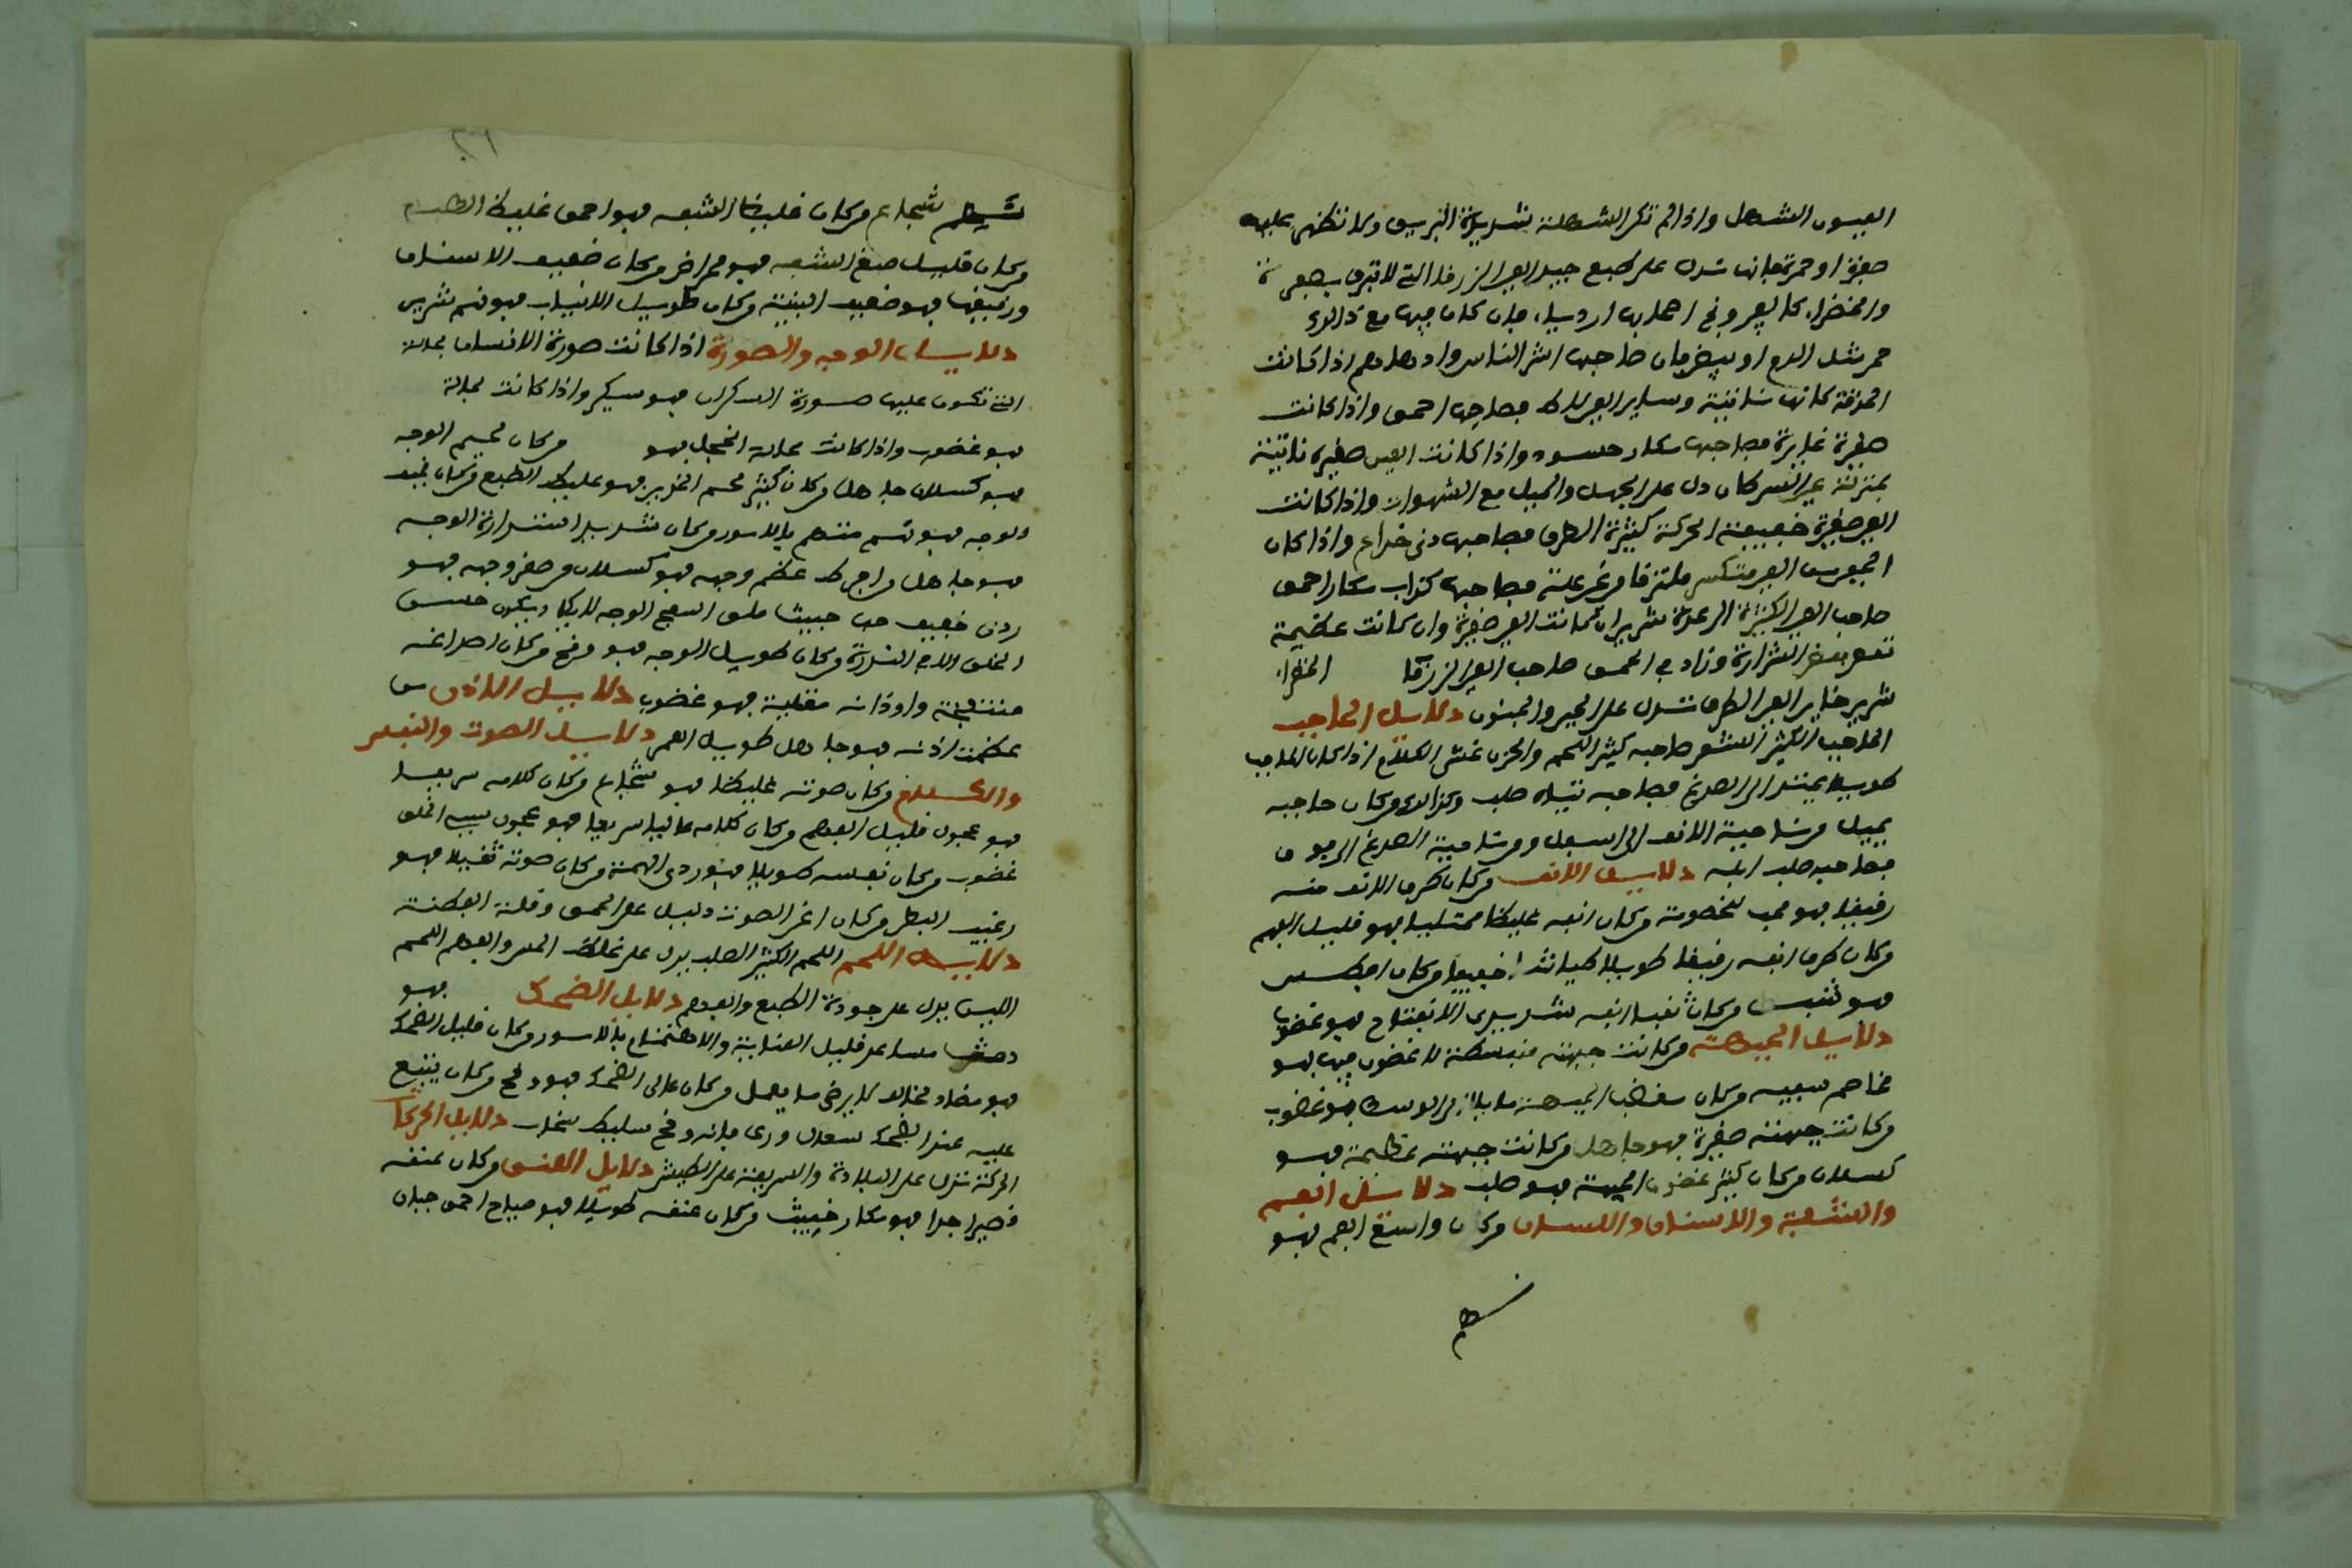 العيون الشهل واذا لم تكن الشهلة شديدة البريق ولا تظهر عليها
صفرة او حمرة فانها تدل على طبع جيد العين الزرقا التي لا تبرق بصفرة
والخضراء كالفيروزج اهلها ارديا، فان كان فيها مع ذالك
حمر مثل الدم او بيض فان صاحبها اشر الناس وادهاهم اذا كانت
الحدقة كانها نابتة وساير العين لاط فصاحبها احمق واذا كانت
صغيرة غايرة فصاحبها مكار حسود واذا كانت العين صغيرة ناتية
بمنزلة عين السركان دل على الجهل والميل مع الشهوات واذا كانت
العين صغيرة خفيفة الحركة كثيرة الطرف فصاحبها دني خداع واذا كان
الجفن من العين متكسر ملتزقا من غير علة فصاحبها كذاب مكار احمق
صاحب العين الكثيرة الرعدة شرير ان كانت العين صغيرة وان كانت عظيمة
نقص بعض الشرارة وزاد في الحمق صاحب العين الزرقا الخضراء
شرير خاين العين الطرف تدل على الجبن والجنون دلايل الحاجب
الحاجب الكثير الشعر صاحبه كثير اللحم والحزن غث الكلام اذا كان الحاجب
طويلا يمتد الى الصدغ فصاحبه تياه صلف وكذالك من كان حاجبه
يميل من ناحية الانف الى اسفل ومن ناحية الصدغ الى فوق
فصاحبه صلف ابله دلايل الانف من كان طرف الانف منه
رقيقا فهو محب للخصومة من كان انفه غليظا ممتليا فهو قليل الفهم
من كان طرف انفه رقيقا طويلا كان طياشا خفيفا من كان افطس
فهو شبق من كان ثقبا انفه شديدي الانفتاح فهو غضوب
دلايل الجبهة من كانت جبهته منبسطة لا غضون فيها فهو
مخاصم سفيه من كان الجبهة مايلا الى الوسط فهو غضوب
من كانت جبهته صغيرة فهو جاهل من كانت جبهته عظيمة فهو
كسلان من كان كثير غضون الجبهة فهو صلف دلايل الفم
والشفة والاسنان واللسان من كان واسع الفم فهو
شجاع من كان غليظ الشفة فهو احمق غليظ الطبع
من كان قليل صبغ الشفة فهو ممراض من كان ضعيف الاسنان
ورقيقها فهو ضعيف البنية من كان طويل الانياب فهو نهم شرير
دلايل الوجه والصورة اذا كانت صورة الانسان بحالة
التي تكون عليها صورة السكران فهو سكير واذا كانت بحالة
فهو غضوب واذا كانت بحالة الخجل فهو من كان لحيم الوجه
فهو كسلان جاهل من كان كثير لحم الخدين فهو غليظ الطبع من كان نحيف
الوجه فهو فهم مهتم بالامور من كان شديد استدارة الوجه
فهو جاهل من افرط عظم وجهه فهو كسلان من صغر وجهه فهو
ردي خفيف خبيث ملق السمج الوجه لا يكاد يكون حسن
الخلق الا في الندرة من كان طويل الوجه فهو وقح من كان اصداغه
منتفخة واوداجه ممتلية فهو غضوب دلايل الاذن من
عظمت اذنه فهو جاهل طويل العمر دلايل الصوت والنفس
والكلام من كان صوته غليظا فهو شجاع من كان كلامه سريعا
فهو عجول قليل الفهم من كان كلامه عاليا سريعا فهو عجول سيء الخلق
غضوب من كان نفسه طويلا فهو ردي الهمة من كان صوته ثقيلا فهو
رغيب البطن من كان اغن الصوت دليل على الحمق وقلة الفطنة
دلايل اللحم اللحم الكثير الصلب يدل على غلظ الحس والفهم اللحم
اللين يدل على جودة الطبع والفهم دلايل الضحك فهو
مساعد قليل العناية والاهتمام بالامور من كان قليل الضحك
فهو مضاد مخالف لا يرضى ما يعمل من كان عالي الضحك فهو وقح من كان يقع
عليه عند الضحك سعال وربو فانه وقح سليط دلايل الحركات
الحركة تدل على البلادة والسريعة على الطيش دلايل العنق من كان عنقه
قصيرا جدا فهو مكار خبيث من كان عنقه طويلا فهو صياح احمق جبان